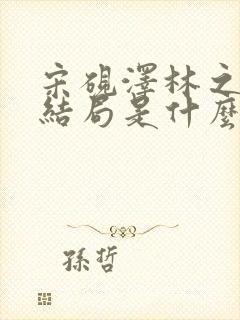 宋硯澤林之
結局是什麼
孫哲